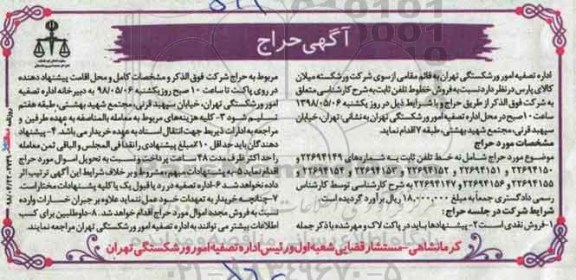 آگهی حراج
اداره تصفیه امور ورشکستگی تهران به قائم مقامی از سوی شرکت ورشکسته میلان
کالای پارس در نظر دارد نسبت به فروش خطوط تلفن ثابت به شرح کارشناسی متعلق
به شرکت فوق الذکر از طریق حراج و با شرایط ذیل در روز یکشنبه ۱۳۹۸/۰۵/۰۶
ساعت ۱۰ صبح در محل اداره تصفیه امور ورشکستگی تهران به نشانی: تهران، خیابان
سپهبد قرنی، مجتمع شهید بهشتی، طبقه ۷ اقدام نماید.
مشخصات مورد حراج
موضوع مورد حراج شامل نه خط تلفن ثابت به شماره‌های ۲۲۶۹۴۱۴۹ و
۲۲۶۹۴۱۵۰ و ۲۲۶۹۴۱۵۱ و ۲۲۶۹۴۱۵۲ و ۲۲۶۹۴۱۵۳ و ۲۲۶۹۴۱۵۴ و
۲۲۶۹۴۱۵۵ و ۲۲۶۹۴۱۵۶ و ۲۲۶۹۴۱۴۷ به شرح کارشناسی توسط کارشناس
رسمی دادگستری جمعاً به مبلغ ۱۸.۰۰۰.۰۰۰ ریال برآورد گردیده است.
شرایط شرکت در جلسه حراج:
۱-فروش نقدی است ۲- پیشنهادها باید در پاکت لاک و مهر شده با ذکر جمله
مربوط به حراج شرکت فوق الذکر و مشخصات کامل و محل اقامت پیشنهاد دهنده
در روی پاکت تا ساعت ۱۰ صبح روز یکشنبه ۹۸/۰۵/۰۶ به دبیرخانه اداره تصفیه
امور ورشکستگی تهران، خیابان سپهبد قرنی، مجتمع شهید بهشتی، طبقه هفتم
تسلیم شود ۳- کلیه هزینه‌های مربوط به معامله بالمناصفه به عهده طرفین و
مراجعه به ادارات ذیربط جهت انتقال اسناد به عهده خریدار می باشد. ۴- پیشنهاد
دهندگان باید حداقل ۱۰٪ مبلغ پیشنهادی را نقداً فی المجلس و الباقی ثمن معامله
را حداکثر ظرف مدت ۴۸ ساعت پرداخت و نسبت به تحویل اموال مورد حراج
اقدام نماید ۵-به پیشنهادات مبهم، مشروط و بر خلاف شرایط این آگهی ترتیب اثر
داده نخواهد شد. ۶-اداره تصفیه در رد یا قبول یک یا کلیه پیشنهادات مختار است.
۷-چنانچه خریدار به تعهدات خود عمل ننماید علاوه بر جبران خسارات وارده
نسبت به فروش مجدد اموال مورد حراج اقدام خواهد شد. ۸- داوطلبین برای کسب
اطلاعات بیشتر می توانند به اداره تصفیه امور ورشکستگی تهران مراجعه نمایند.
کرمانشاهی - مستشار قضایی شعبه اول و رئیس اداره تصفیه امور ورشکستگی تهران